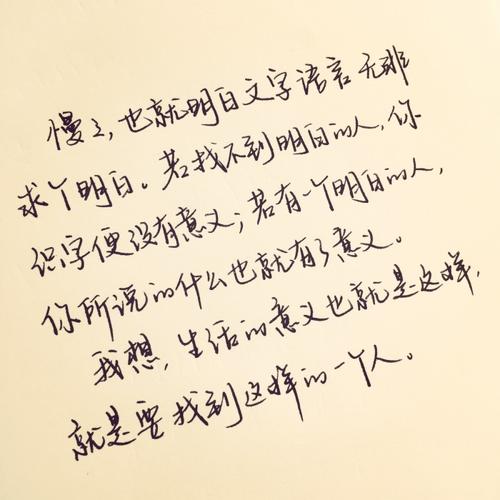 慢慢,也就明白文字语言无非
求个明白。若找不到明白的人,你
识字便没有意义;若有一个明白的人,
你所说的什么也就有了意义。
我想,生活的意义也就是这样,
就是要找到这样的一个人。